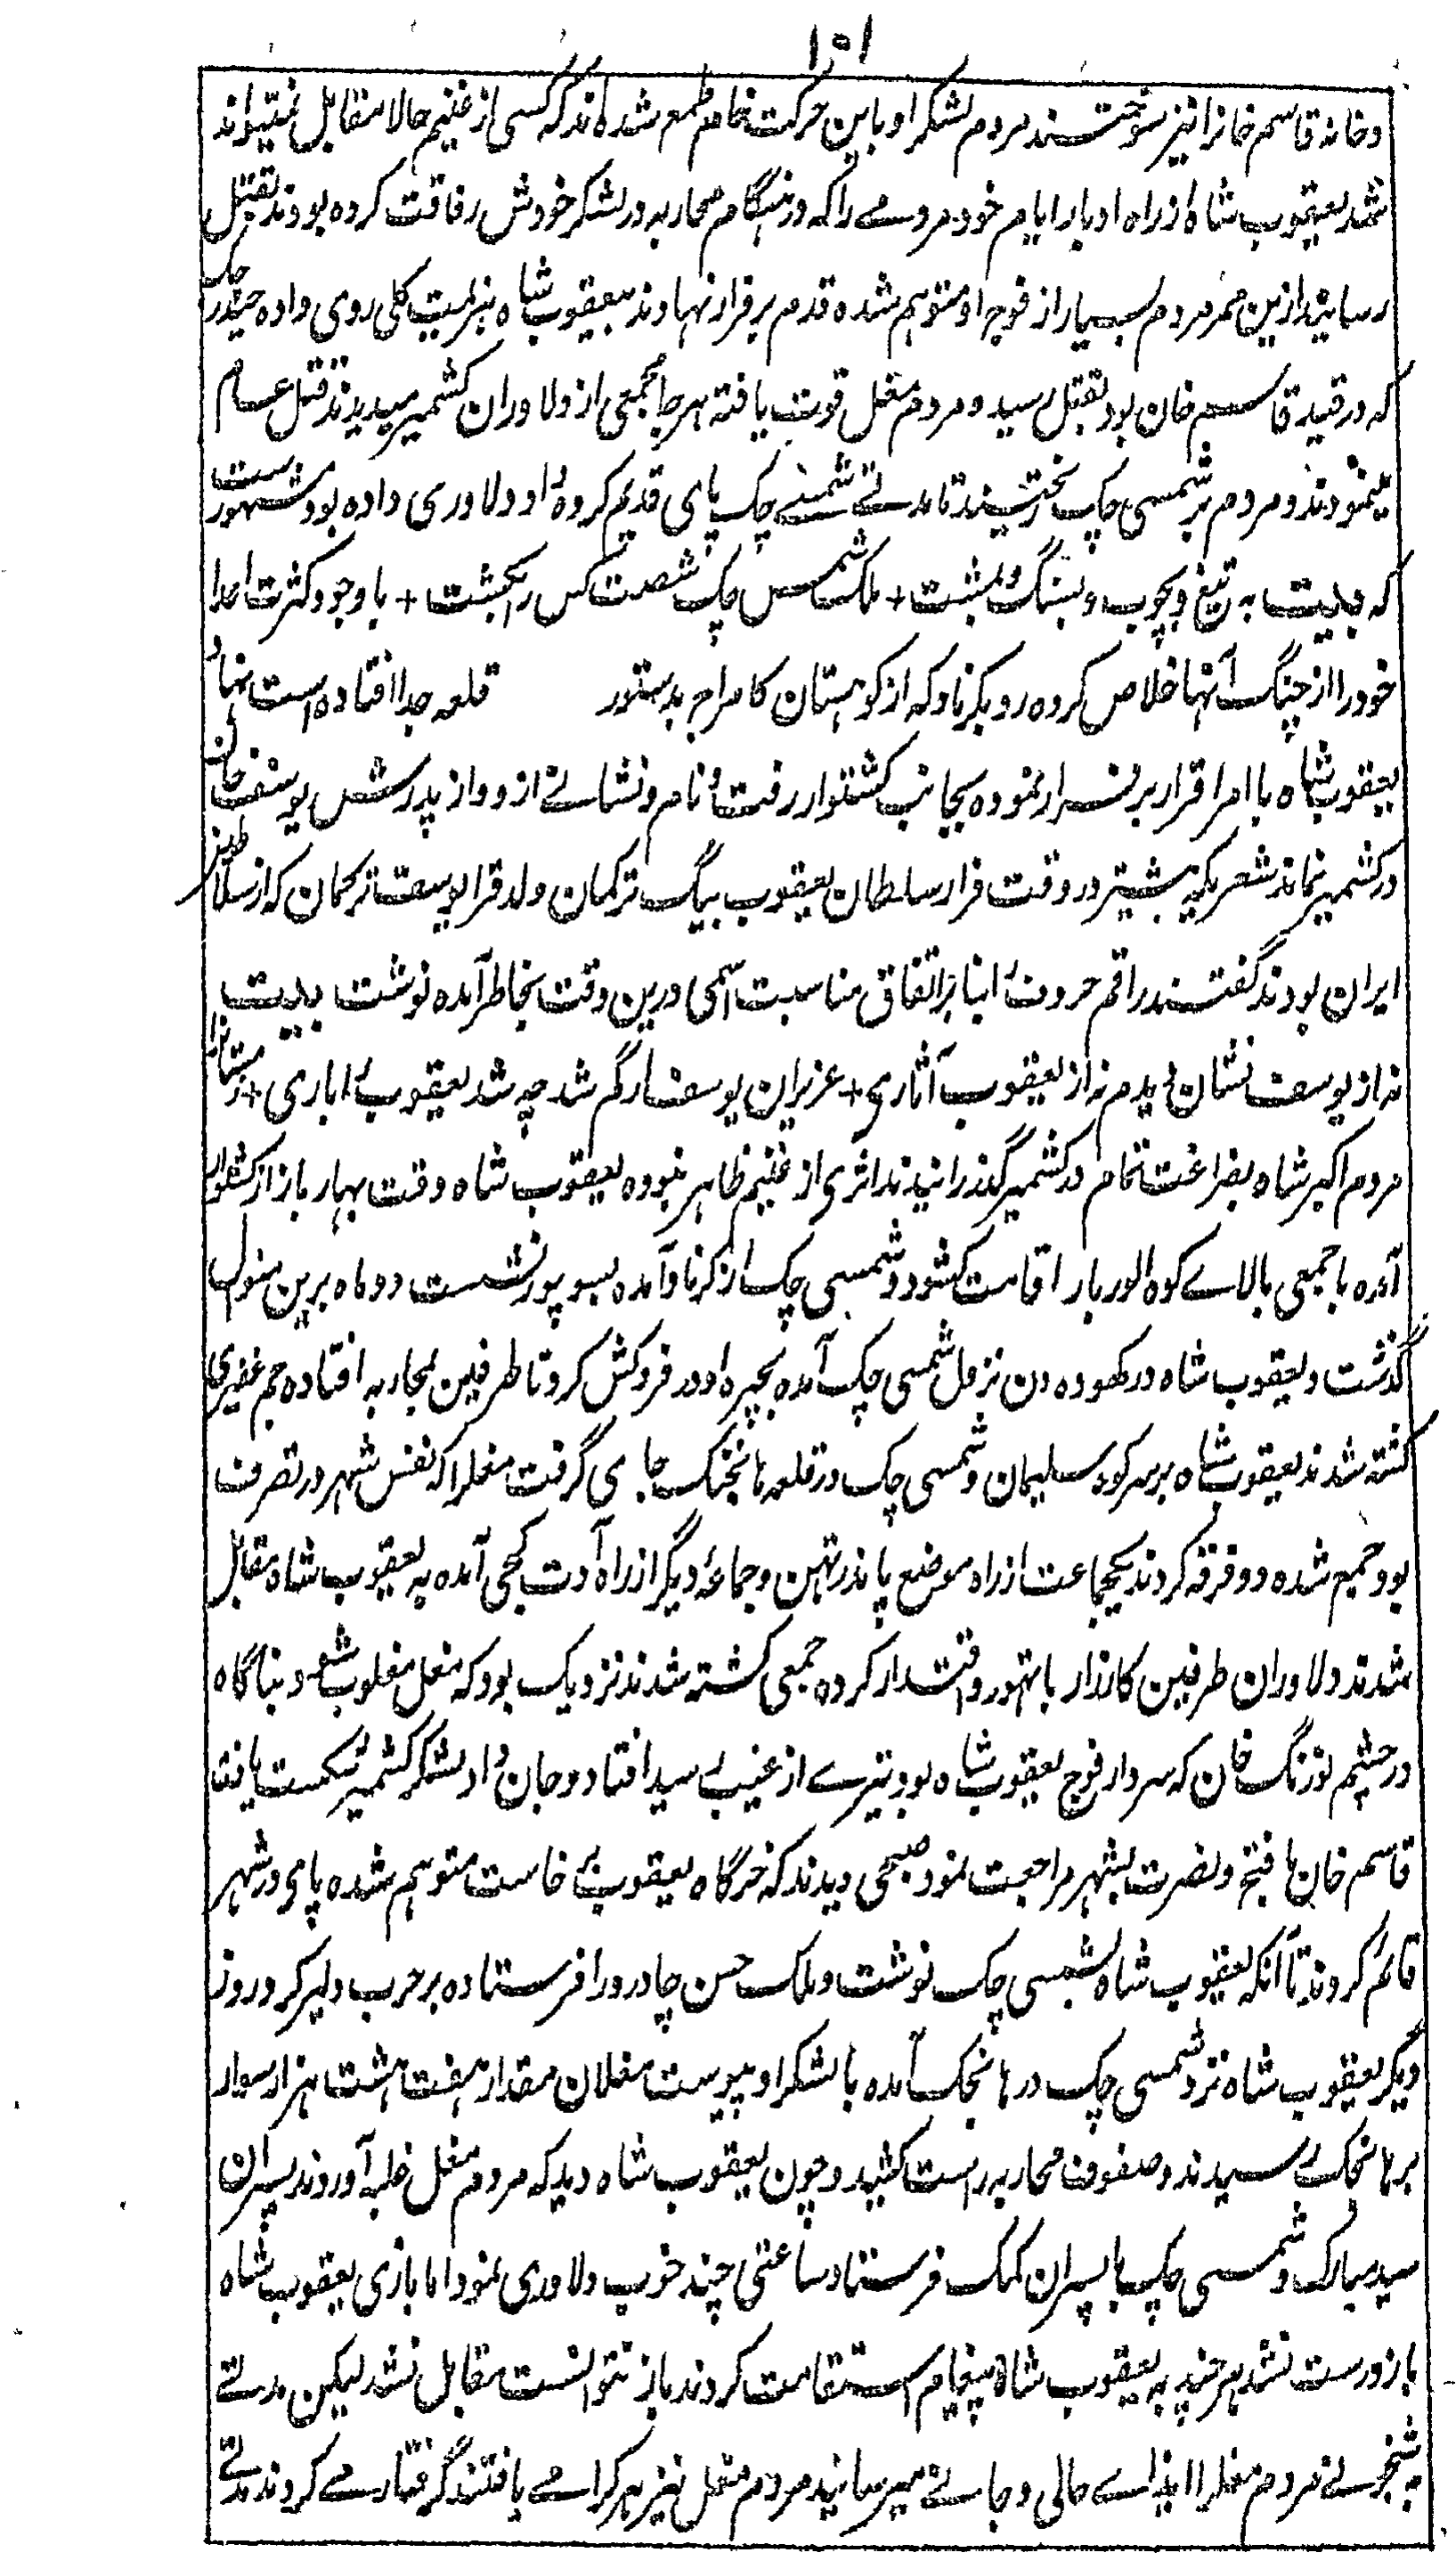 ۱۰۱
و خانه قاسم خانرا نیز سوختند مردم لشکر او باین حرکت خام طمع شده‌اند که کسی از غنیم حالا مقابل نمیتواند
شد یعقوب شاه از راه ادبار ایام خود مردمے را که در هنگام محاربه در لشکر خودش رفاقت کرده بودند بقتل
رسانید ازین ممر مردم بسیار از فوج او متوهم شده قدم بر فرار نهادند بیعقوب شاه هزیمت کلی روی داده حیدر چک
که در قید قاسم خان بود بقتل رسید و مردم مغل قوت یافته هر جا جمعی از دلاوران کشمیر میدیدند قتل عام
مینمودند و مردم بر شمسی چک تا مدتے شمسے چک پای قدیم کرده او دلاوری داده بود مشهورست
که بیت به تیغ و بچوب و بسنگ و بمشت + ملک شمس چک شصت کس را بکشت + باوجود کثرت اعدا
خود را از چنگ آنها خلاص کرده رو بکرناو که از کوهستان کامراج بدستور قلعه جدا افتاده است نهاد
یعقوب شاه با امرا قرار بر فرار نموده بجانب کشتوار رفت و نام و نشانے ازو و از پدرش یوسف خان
در کشمیر نماند شعریکه پیشتر در وقت فرار سلطان یعقوب بیگ ترکمان ولد قرا یوسف ترکمان که از سلاطین
ایران بودند گفتند راقم حروف را بنابر اتفاق مناسبت اسمی درین وقت بخاطر آمده نوشت بیت
نه از یوسف نشان دیدم نه از یعقوب آثاری + عزیزان یوسف ار گم شد چه شد یعقوب را باری + زمستانرا
مردم اکبر شاه بفراغت تمام در کشمیر گذرانیدند اثری از غنیم ظاهر نبوده یعقوب شاه وقت بهار باز از کشتوار
آمده با جمعی بالاے کوه الور بار اقامت کشود و شمسی چک از کرناو آمده بسوپور نشست دو ماه برین منوال
گذشت و یعقوب شاه در کھوده دن نزول شمسی چک آمده بجیره اودر فروکش کرد تا طرفین بمحاربه افتاده جم غفیری
کشته شدند یعقوب شاه بر سر کوه سلیمان و شمسی چک در قلعه هانجنک جای گرفت مغلرا که نفس شهر در تصرف
بود جمع شده دو فرقه کردند یکجماعت از راه موضع پاندرتهن و جماعهٔ دیگر از راه آدت کجی آمده به یعقوب شاه مقابل
شدند دلاوران طرفین کارزار با تهور و اقتدار کرده جمعی کشته شدند نزدیک بود که مغل مغلوب شود بناگاه
در چشم نورنگ خان که سردار فوج یعقوب شاه بود تیرے از غیب رسید افتاد و جان داد لشکر کشمیر شکست یافت
قاسم خان با فتح و نصرت بشهر مراجعت نمود صبحی دیدند که خرگاه یعقوب بر پا خاست متوهم شده پای در شهر
قائم کردند تا آنکه یعقوب شاه بشمسی چک نوشت و ملک حسن چادرو را فرستاده بر حرب دلیر کرد روز
دیگر یعقوب شاه نزد شمسی چک در هانجک آمده با لشکر او پیوست مغلان مقدار هفت هشت هزار سوار
بر هانجک رسیدند و صفوف محاربه راست کشید و چون یعقوب شاه دید که مردم مغل غلبه آوردند پسران
سید مبارک و شمسی چک با پسران کمک فرستاد ساعتی چند خوب دلاوری نمود اما بازی یعقوب شاه
باز درست نشد هر چند به یعقوب شاه پیغام استقامت کردند باز نتوانست مقابل نشد لیکن مدتے
به شبخونے مردم مغلرا ایذاے مالی و جانے میرسانید مردم مغل نیز هر کرا مے یافتند گرفتار مے کردند مدتے